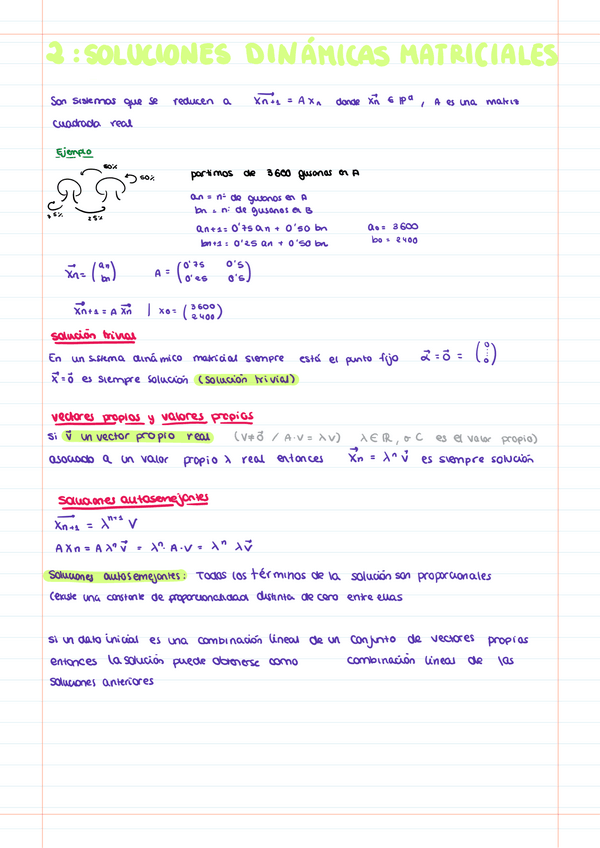 2: SOLUCIONES DINÁMICAS MATRICIALES
Son sistemas que se reducen a Xn+1 = A Xn donde Xn ∈ ℝᵈ, A es una matriz
cuadrada real
Ejemplo
50%
50%
75%
25%
partimos de 3600 gusanos en A
an = nº de gusanos en A
bn = nº de gusanos en B
an+1 = 0'75 an + 0'50 bn a0 = 3600
bn+1 = 0'25 an + 0'50 bn b0 = 2400
Xn = (an bn) A = (0'75 0'5 0'25 0'5)
Xn+1 = A Xn | x0 = (3600 2400)
solución trivial
En un sistema dinámico matricial siempre está el punto fijo α = 0 = (0 ⋮ 0)
x = 0 es siempre solución (solución trivial)
vectores propios y valores propios
si v un vector propio real (v≠0 / A·v = λv) λ∈ℝ, o C es el valor propio)
asociado a un valor propio λ real entonces Xn = λⁿ v es siempre solución
soluciones autosemejantes
Xn+1 = λⁿ⁺¹ v
AXn = A λⁿ v = λⁿ · A·v = λⁿ λv
Soluciones autosemejantes: Todas los términos de la solución son proporcionales
(existe una constante de proporcionalidad distinta de cero entre ellas
si un dato inicial es una combinación lineal de un conjunto de vectores propios
entonces la solución puede obtenerse como combinación lineal de las
soluciones anteriores